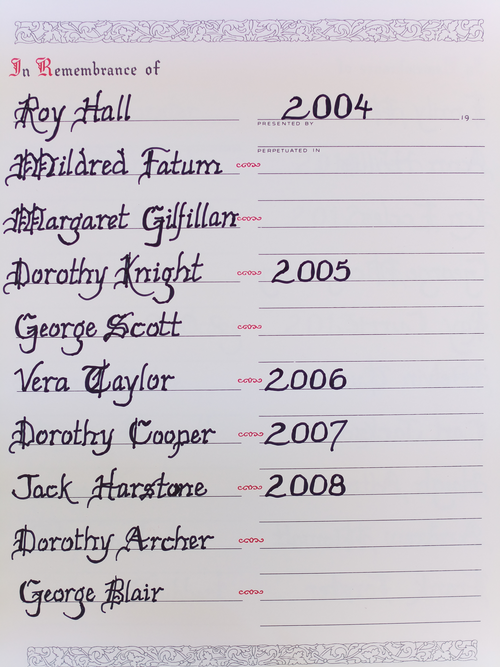 In Remembrance of
Roy Hall 2004 19
PRESENTED BY
PERPETUATED IN
Mildred Fatum
Margaret Gilfillan
Dorothy Knight 2005
George Scott
Vera Taylor 2006
Dorothy Cooper 2007
Jack Harstone 2008
Dorothy Archer
George Blair